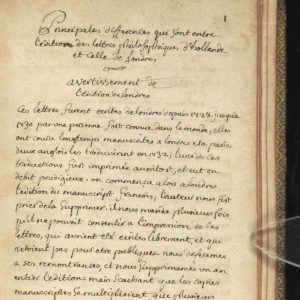 1
Principales differences qui sont entre
l'edition des lettres philosophiques d'hollande
et celle de Londres
avertissement de
l'edition de londres
Ces lettres furent ecrites de londres depuis 1728 jusqu'a
1730 par une personne fort connue dans le monde; elles
ont couru longtemps manuscrites a londres et a paris.
deux anglois les traduisirent en 1732; l'une de ces
traductions fut imprimée aussitot, et eut un
debit prodigieux. on commença alors a londres
l'edition du manuscript francois; l'auteur nous fit
prier de la supprimer. il nous manda plusieurs fois
qu'il ne pouvoit consentir a l'impression de ces
lettres, qui avoient eté ecrites librement, et qui
n'etoient pas pour etre publiques. nous cedames
a ses remontrances, et nous supprimames un an
entier l'edition: mais scachant que les copies
manuscriptes se multiplioient que plusieurs